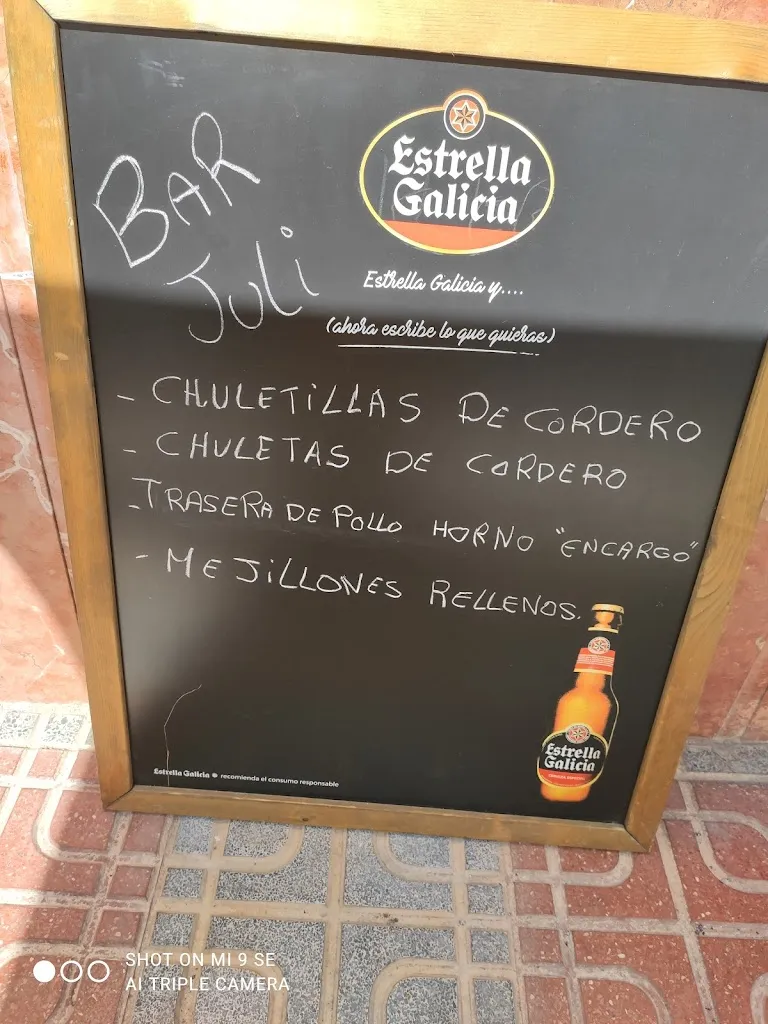 BAR
Juli
Estrella
Galicia
Estrella Galicia y....
(ahora escribe lo que quieras)
- CHULETiLLAS DE CORDERO
- CHULETAS DE CORDERO
- TRASERA DE POLLO HORNO "ENCARGO"
- MEJiLLONES RELLENOS.
Estrella
Galicia
Estrella Galicia recomienda el consumo responsable
SHOT ON MI 9 SE
AI TRIPLE CAMERA